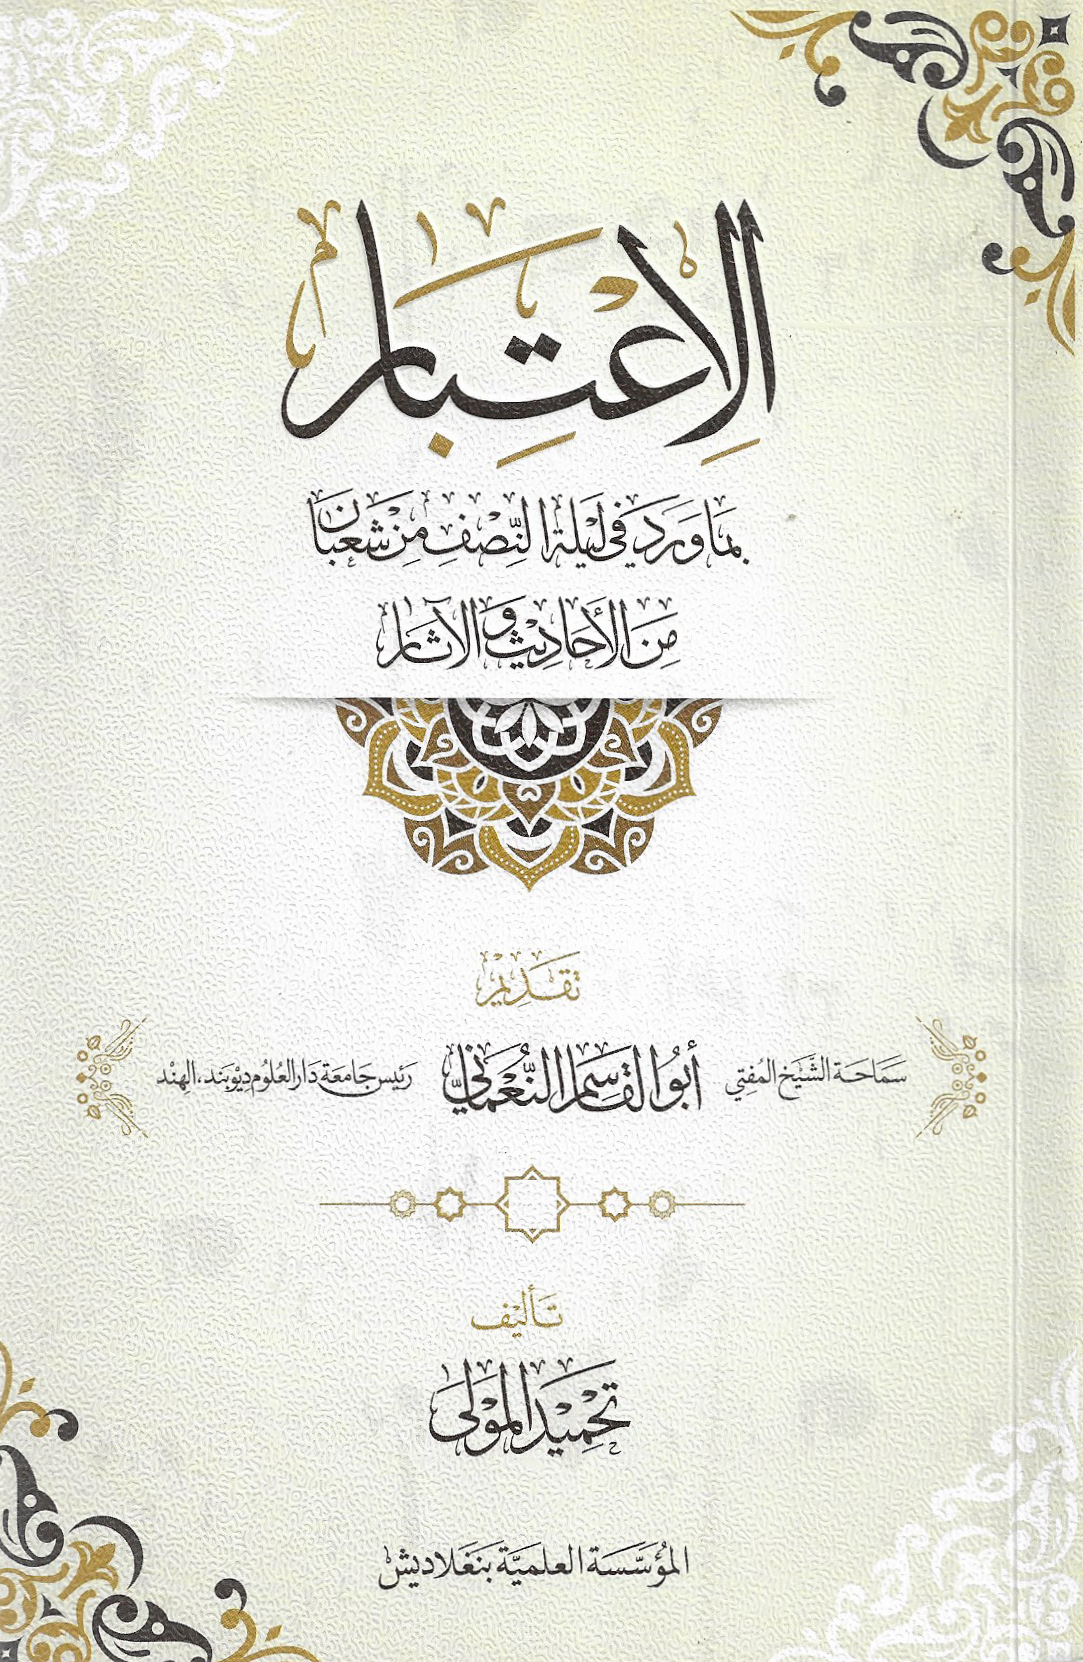 الِاعْتِبَار
بِمَا وَرَدَ فِي لَيْلَةِ النِّصْفِ مِنْ شَعْبَان
مِنَ الأَحَادِيْثِ وَالآثَار
تَقْدِيْم
سَمَاحَة الشَّيْخ المُفْتِي أَبُو القَاسِم النُّعْمَانِيّ رَئِيس جَامِعَة دَار العُلُوم دِيُوبَند، الهِنْد
تَأْلِيْف
تَحْمِيْد المَوْلَى
المُؤَسَّسَة العِلمِيَّة بَنغَلادِيش